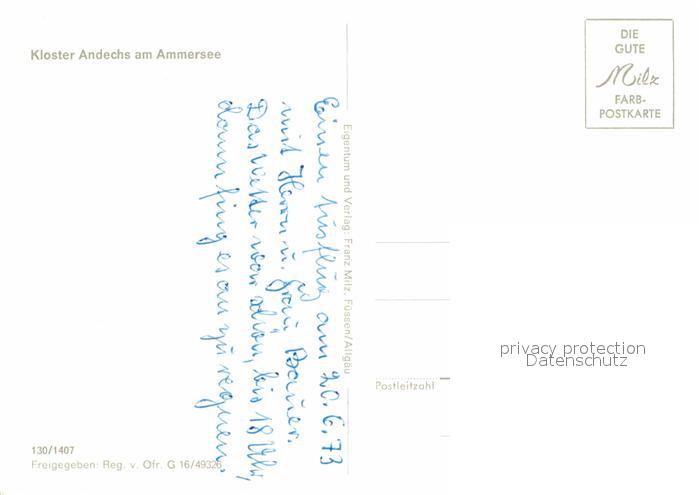 Kloster Andechs am Ammersee
DIE
GUTE
Milz
FARB-
POSTKARTE
Einen Ausflug am 20.6.73
mit Herrn u. Frau Bauer.
Das Wetter war schön, bis 18 Uhr,
dann fing es an zu regnen.
Eigentum und Verlag: Franz Milz, Füssen/Allgäu
privacy protection
Datenschutz
Postleitzahl
130/1407
Freigegeben: Reg. v. Ofr. G 16/49326